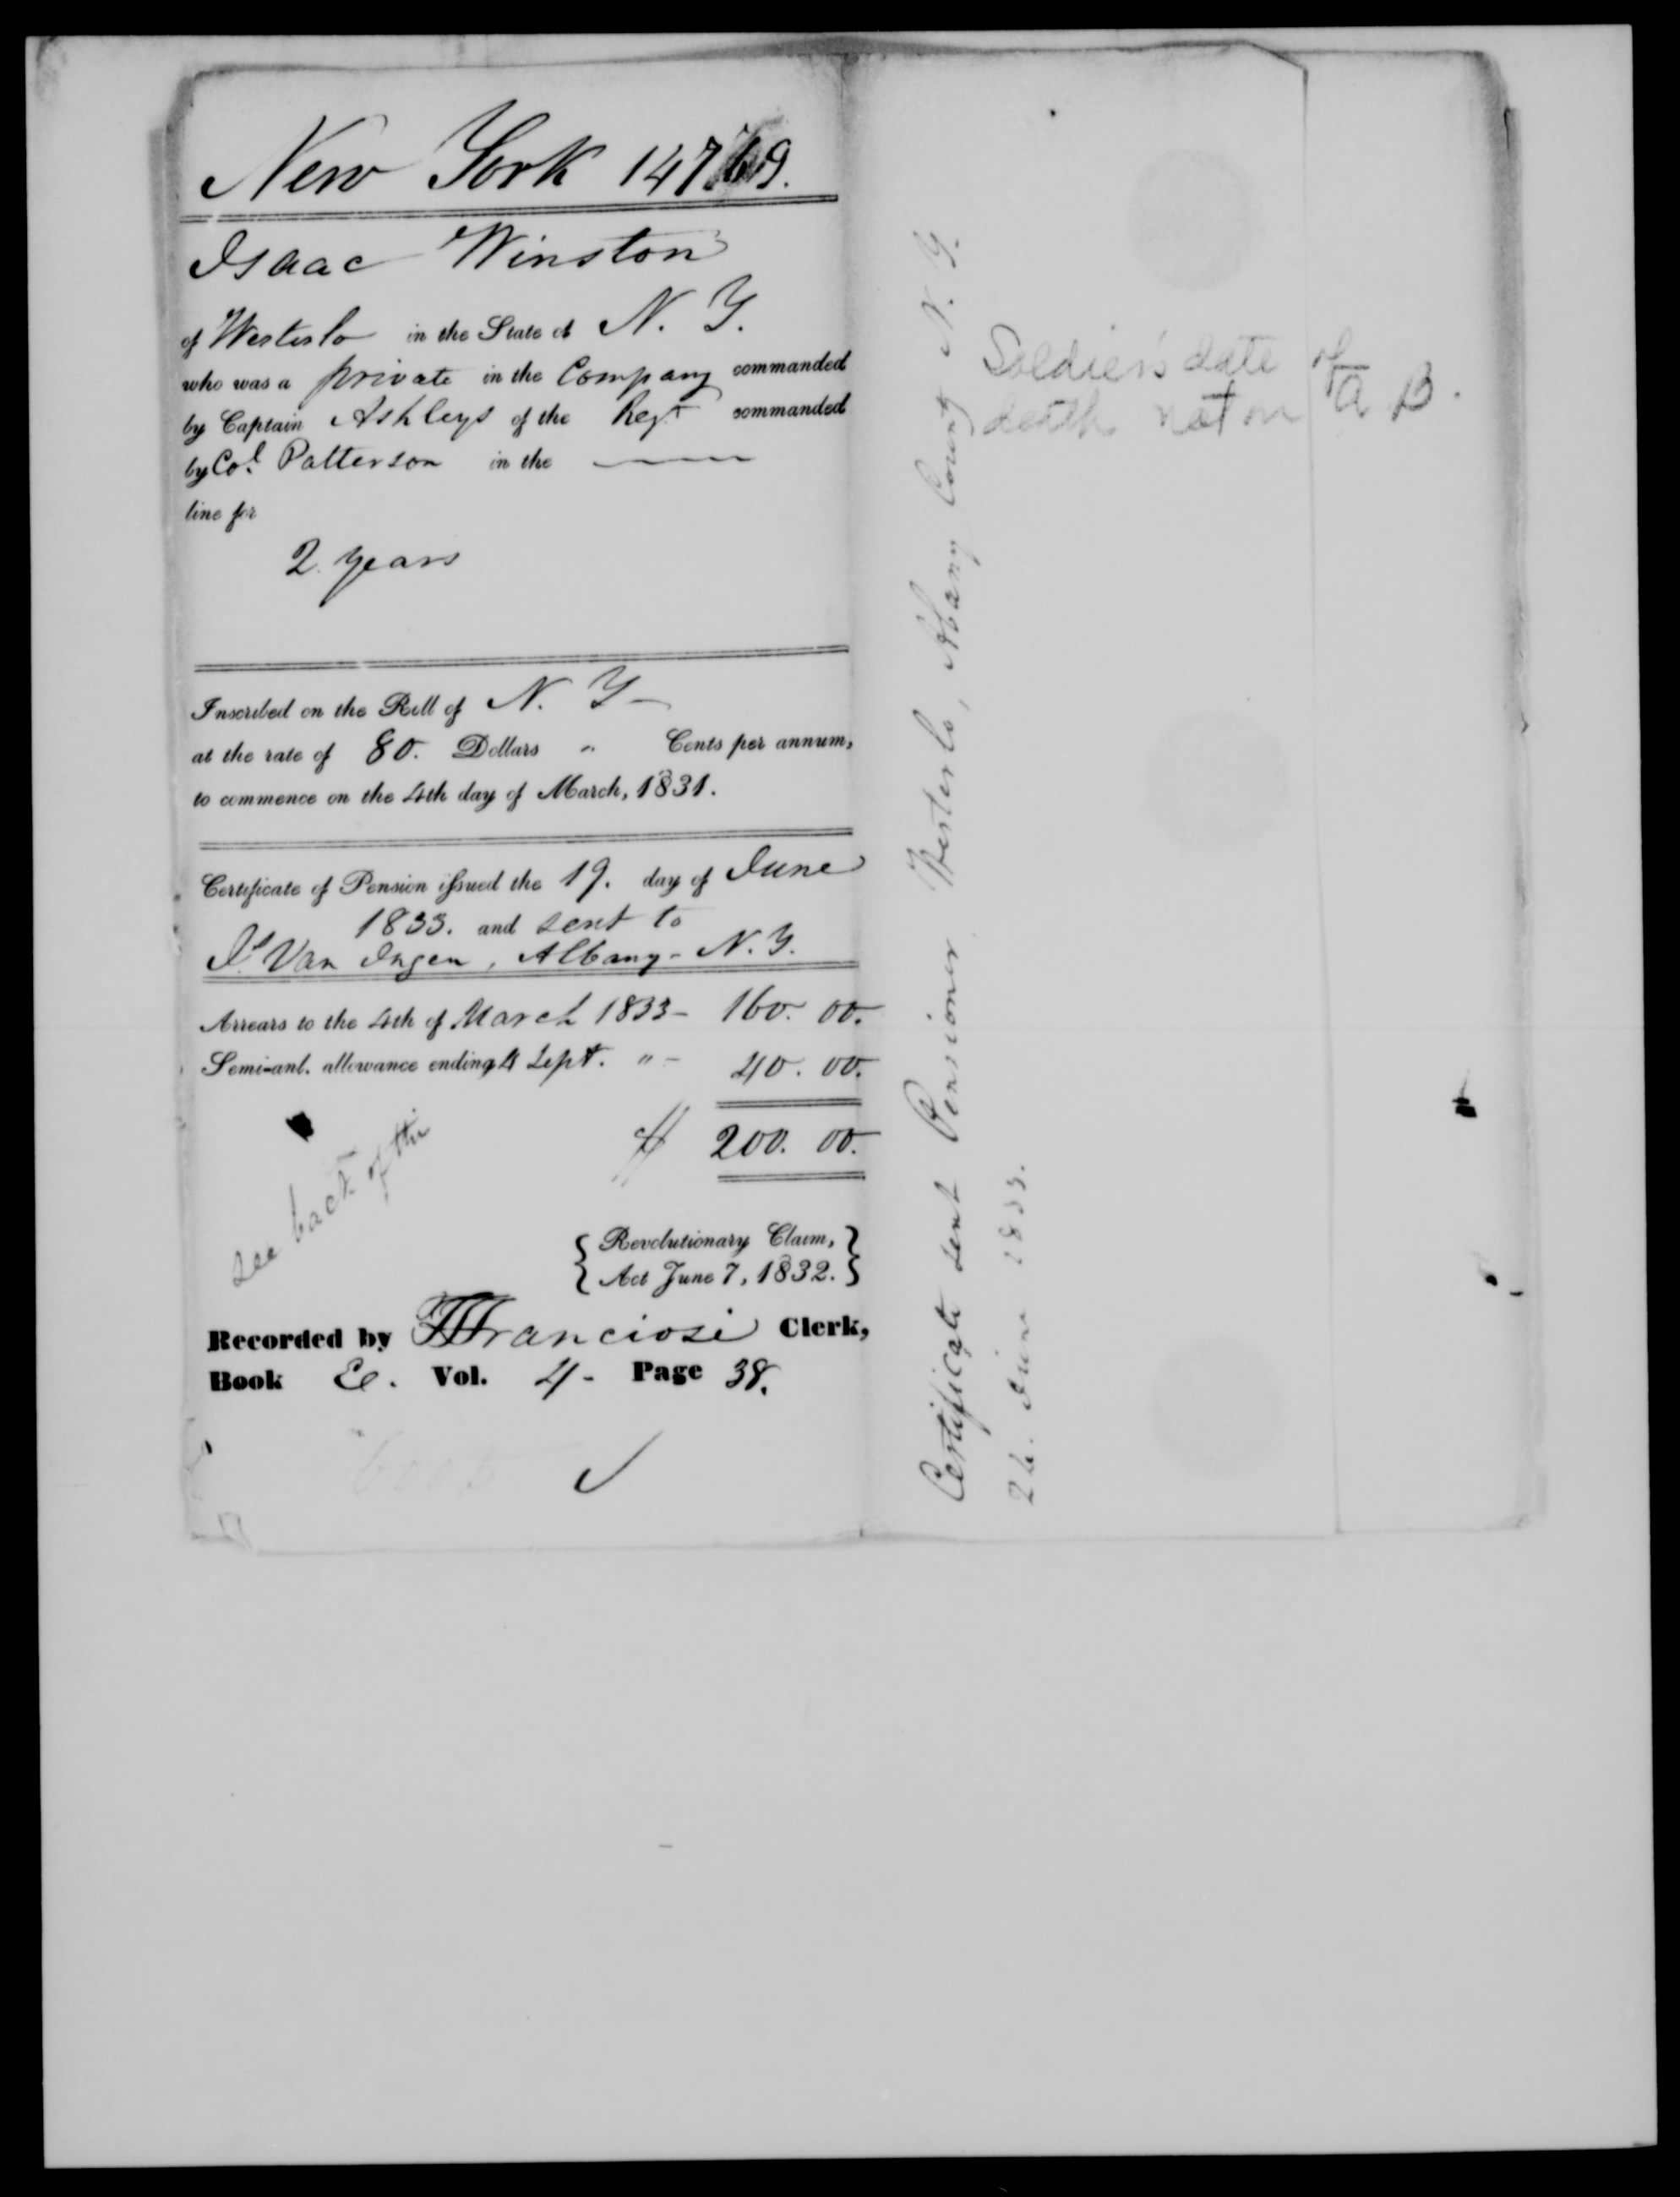 New York 14769.
Isaac Winston
of Westerlo in the State of N. Y.
who was a private in the Company commanded
by Captain Ashleys of the Regt commanded
by Col. Patterson in the
line for
2 years
Inscribed on the Roll of N. Y
at the rate of 80. Dollars " Cents per annum,
to commence on the 4th day of March, 1831.
Certificate of Pension issued the 19. day of June
1833. and sent to
Van Ingen, Albany - N.Y.
Arrears to the 4th of March 1833 - 160. 00.
Semi-anl. allowance ending 4 Sept. " - 40. 00.
$ 200. 00.
see back of this
{ Revolutionary Claim, }
{ Act June 7, 1832. }
Recorded by Franciosi Clerk,
Book E. Vol. 4 - Page 38.
Certificate sent Pensioner Westerlo, Albany County N. Y.
26. June 1833.
Soldier's date of
death not on a B.